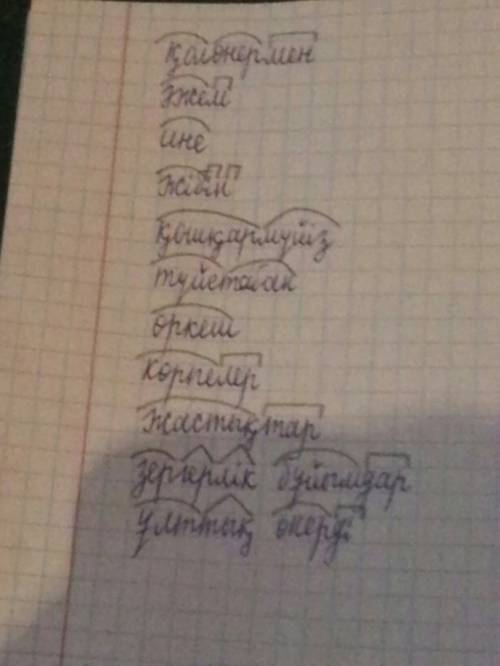 қолөнермен
әжем
ине
жібін
қошқармүйіз
түйетабан
өркеш
көрпелер
жастықтар
зергерлік бұйымдар
ұлттық өнерді